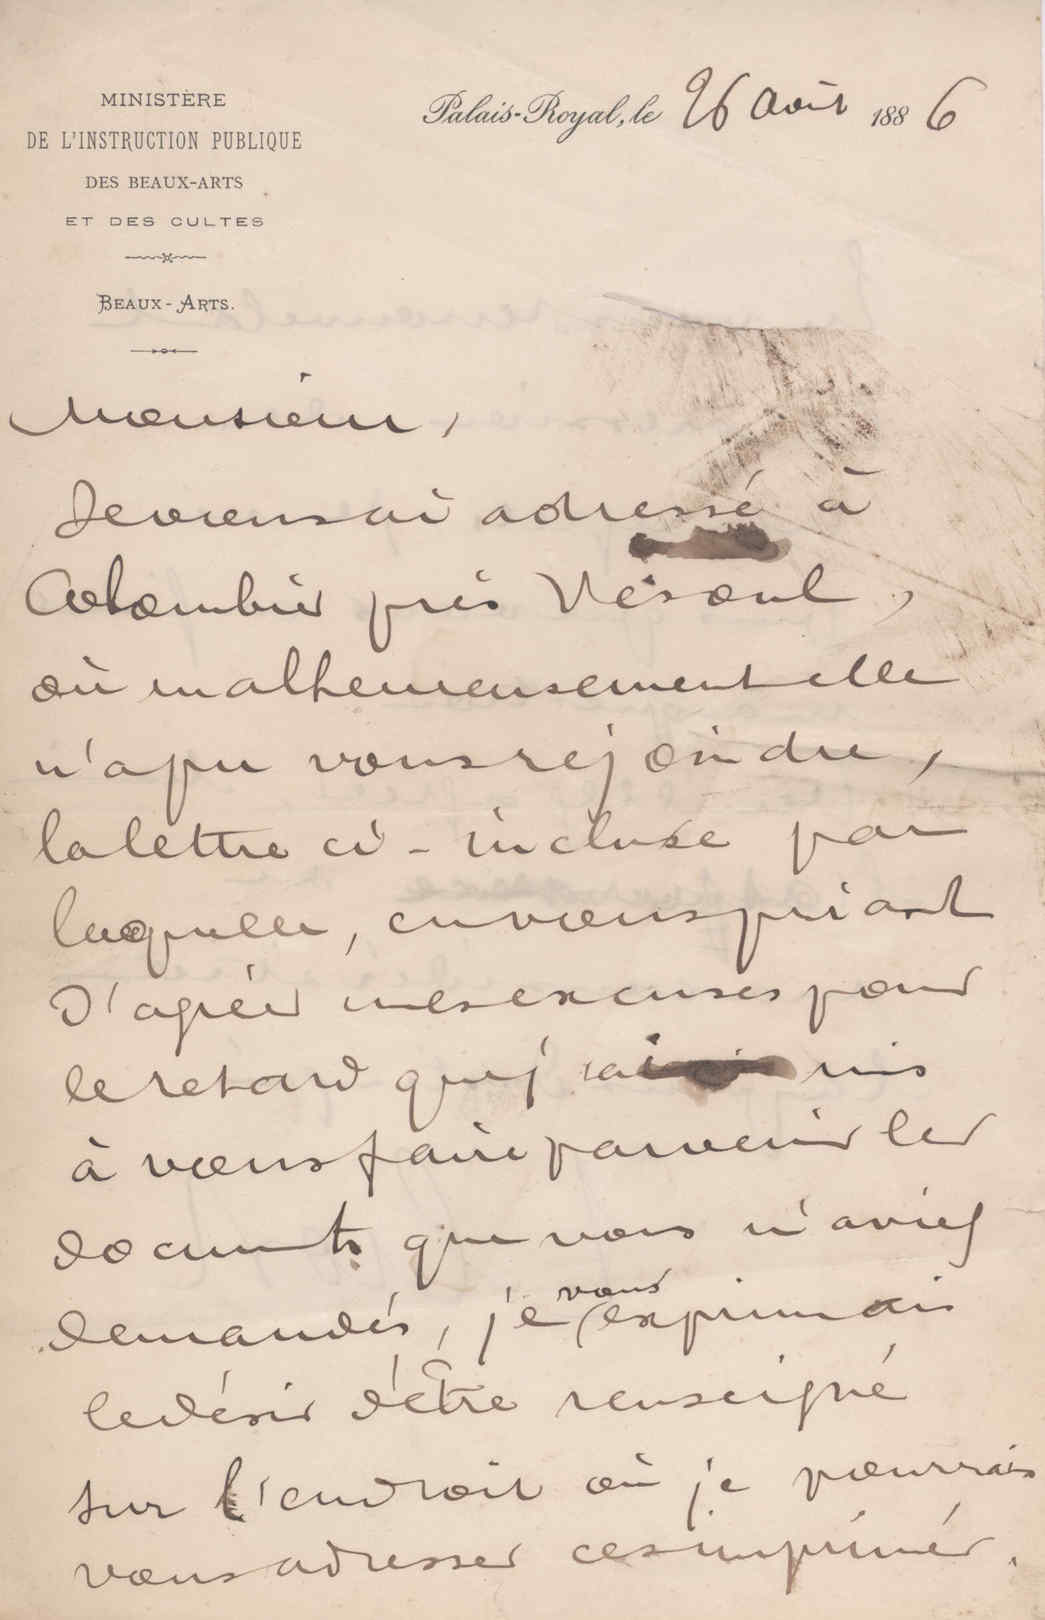 MINISTÈRE
DE L'INSTRUCTION PUBLIQUE
DES BEAUX-ARTS
ET DES CULTES
BEAUX-ARTS.
Palais-Royal, le 26 août 1886
Monsieur,
Je vous ai adressé à
Colombier près Vésoul,
où malheureusement elle
n'a pu vous rejoindre,
la lettre ci-incluse par
laquelle, en vous priant
d'agréer mes excuses pour
le retard que j'ai mis
à vous faire parvenir les
documents que vous m'aviez
demandés, je vous exprimais
le désir d'être renseigné
sur l'endroit où je pourrais
vous adresser ces imprimés.